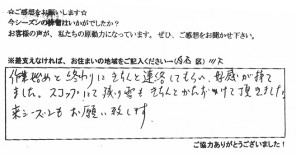 ☆ご感想をお願いします☆
今シーズンの排雪はいかがでしたか?
お客様の声が、私たちの原動力になっています。ぜひ、ご感想をお聞かせ下さい。
※差支えなければ、お住まいの地域をご記入ください→( 区)
作業始めと終わりにきちんと連絡してもらい、好感が持て
ました。スコップにて残り雪もきちんとかたづけて頂きました。
来シーズンもお願い致します。
ご協力ありがとうございました!